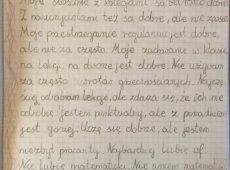 Moje stosunki z kolegami są
Z nauczycielami też są dobre, ale nie zawsze
Moje przestrzeganie regulaminu jest dobre,
ale nie za często. Moje zachowanie w klasie
na lekcji, na dworze jest dobre. Nie używam
za często zwrotów grzecznościowych. Najczę
ściej odrabiam lekcje, ale zdarza się, że ich nie
odrobię. Jestem punktualny, ale z porządkiem
jest gorzej. Uczę się dobrze, ale jestem
niezbyt pracowity. Najbardziej lubię wf.
Nie lubię matematyki. Nie umiem matematyki